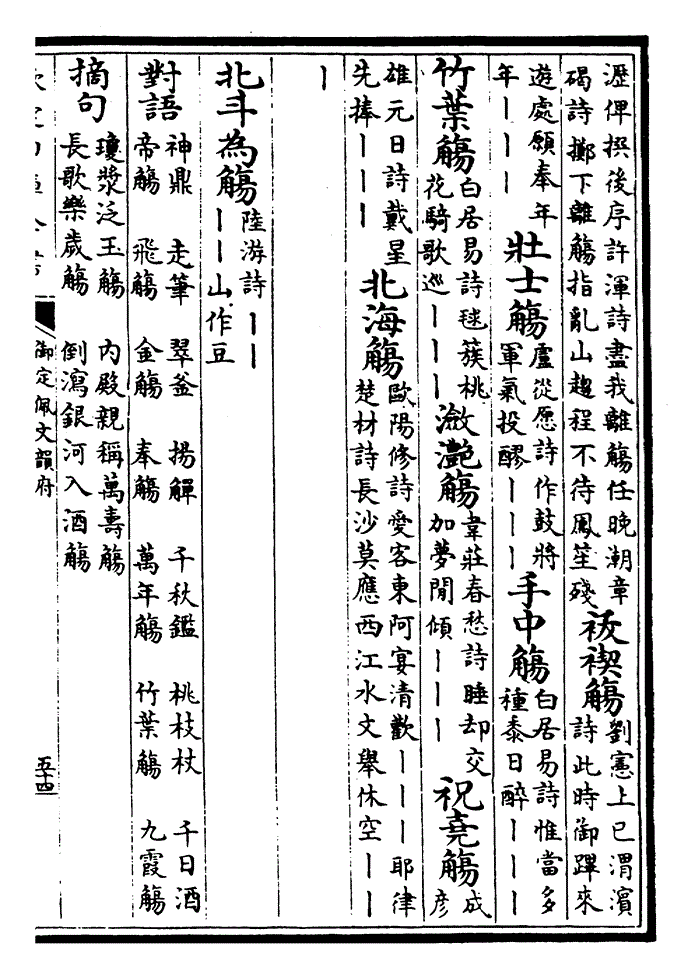 瀝俾撰後序許渾詩盡我離觴任晚潮章
碣詩擲下離觴指亂山趨程不待鳳笙殘
祓禊觴
劉憲上巳渭濱
詩此時御蹕來
遊處願奉年
年｜｜｜
壯士觴
盧從愿詩作鼓將
軍氣投醪｜｜｜
手中觴
白居易詩惟當多
種黍日醉｜｜｜
竹葉觴
白居易詩毬簇桃
花騎歌巡｜｜｜
瀲灩觴
韋莊春愁詩睡却交
加夢閒傾｜｜｜
祝堯觴
成
彥
雄元日詩戴星
先捧｜｜｜
北海觴
歐陽修詩愛客東阿宴清歡｜｜｜耶律
楚材詩長沙莫應西江水文舉休空｜｜
｜
北斗為觴
陸游詩｜｜
｜｜山作豆
對語
神鼎 走筆 翠釜 揚觶 千秋鑑 桃枝杖 千日酒
帝觴 飛觴 金觴 奉觴 萬年觴 竹葉觴 九霞觴
摘句
瓊漿泛玉觴 內殿親稱萬壽觴
長歌樂歲觴 倒瀉銀河入酒觴
御定佩文韻府
五十四